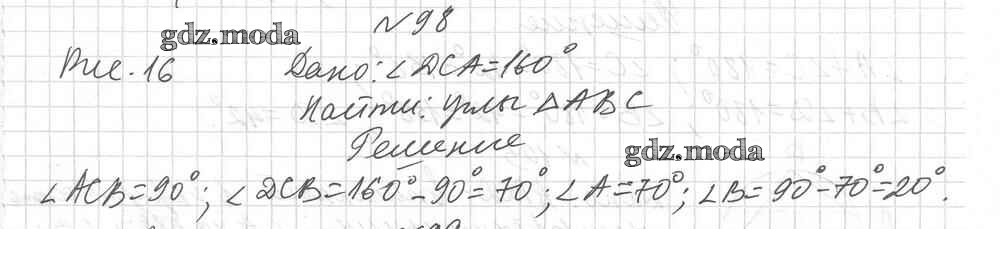 №98
gdz.moda
Рис. 16 Дано: ∠DCA=160°
Найти: углы △ABC
Решение
gdz.moda
∠ACB=90°; ∠DCB=160°-90°=70°; ∠A=70°; ∠B=90°-70°=20°.